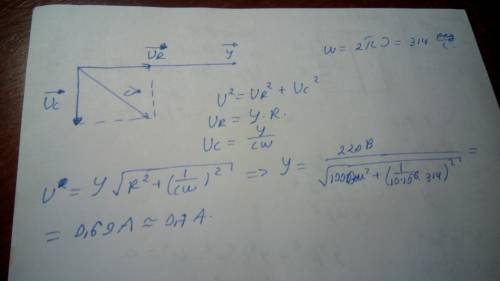 U_R→ y→
ω = 2πν = 314 рад/с
U_C→
U→
U² = U_R² + U_C²
U_R = y · R.
U_C = y/cω
U = y √(R² + (1/cω)²) => y = 220В / √(100 Ом² + (1/10·10⁻⁶ 314)²) =
= 0,69 А ≈ 0,7 А.